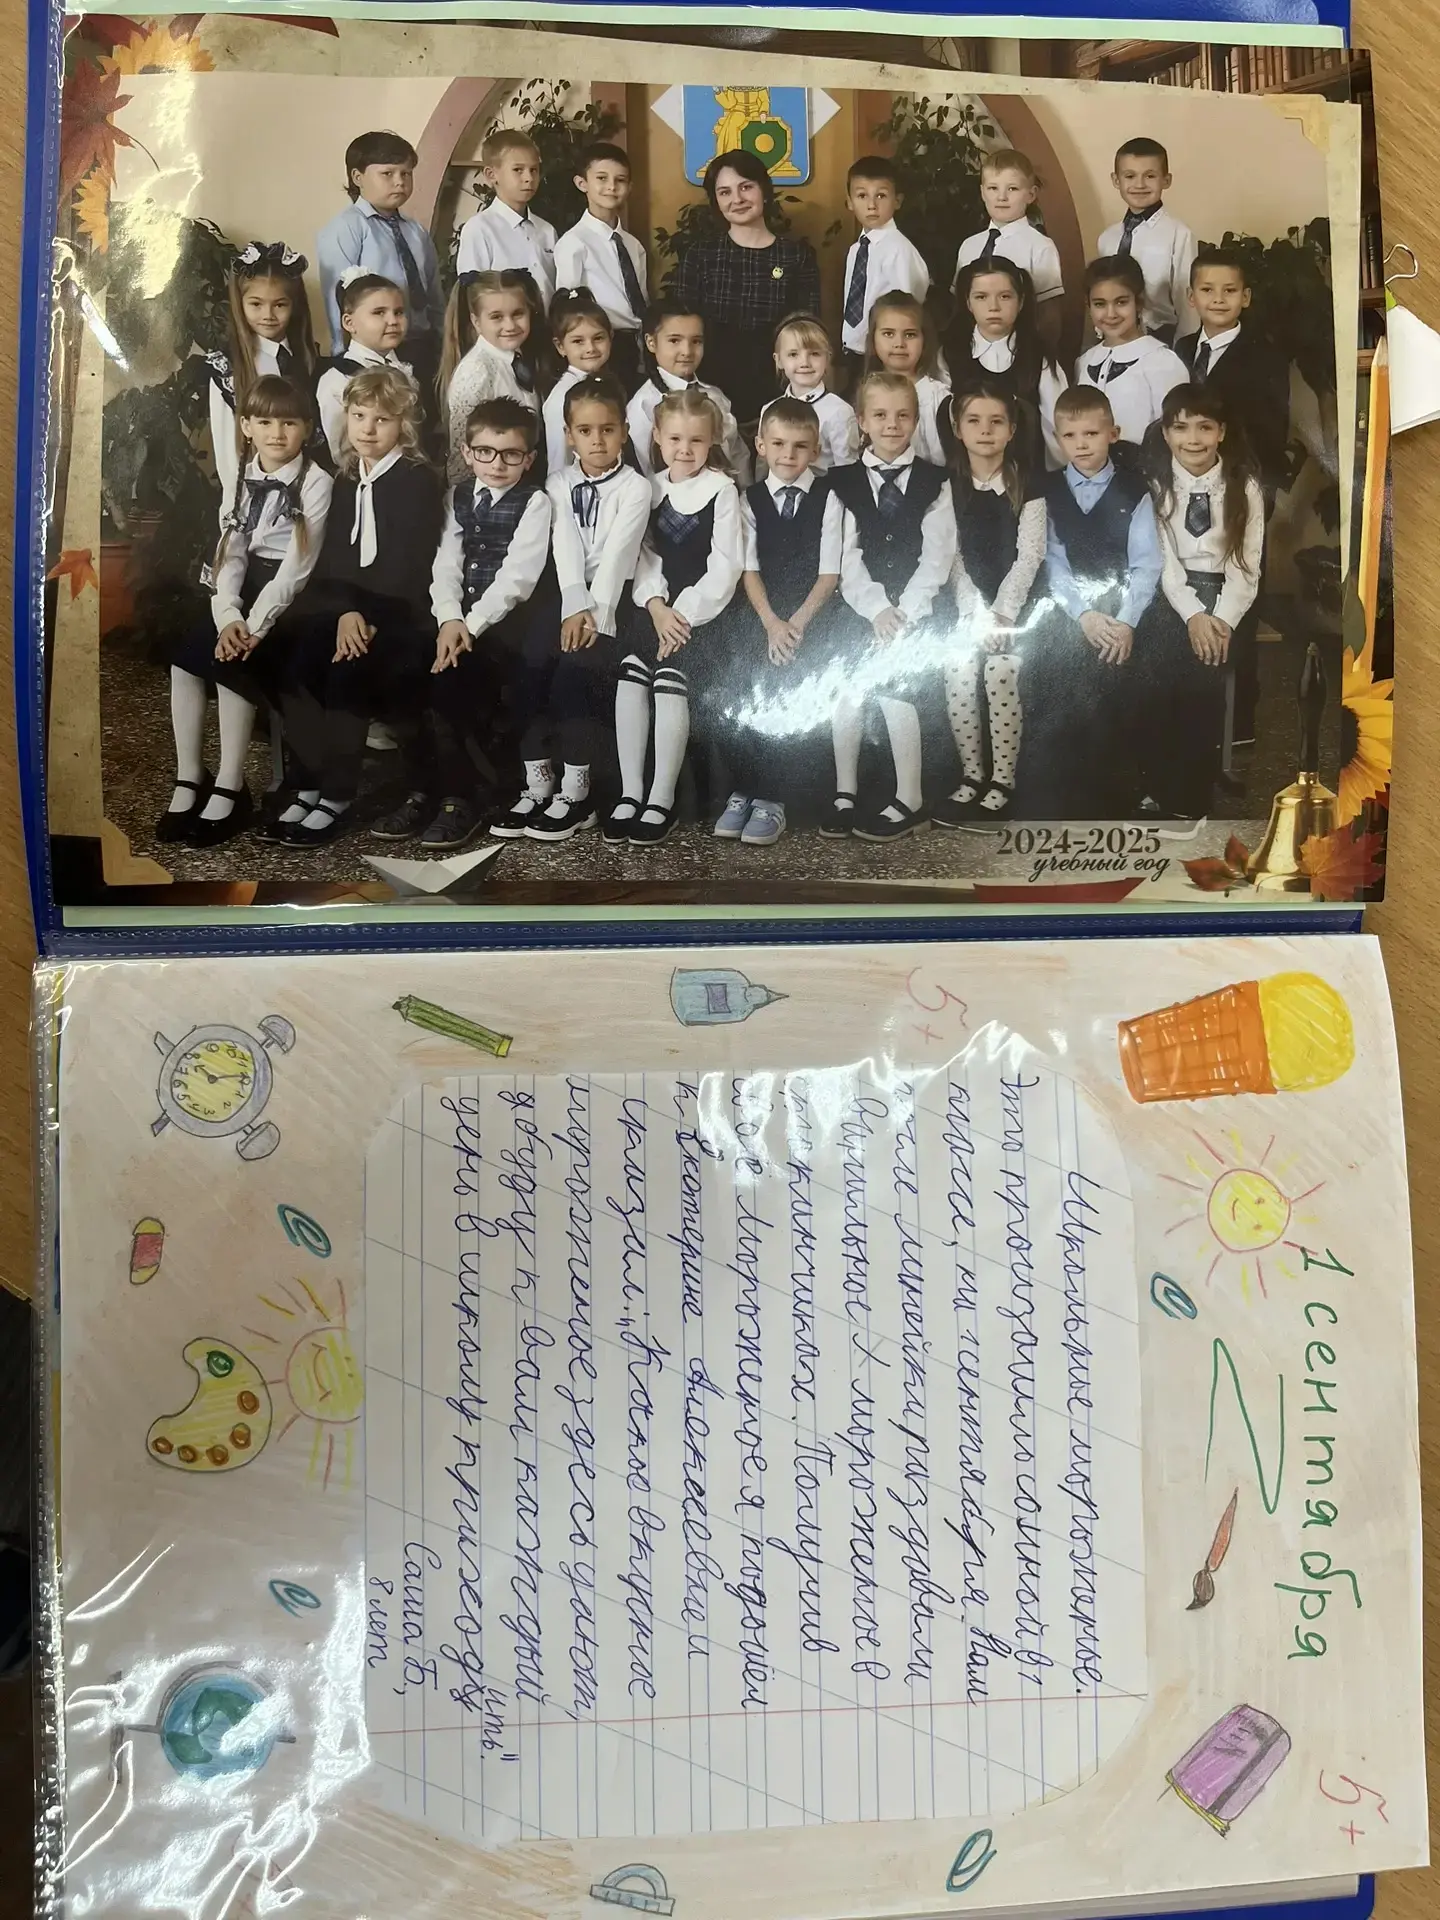 2024-2025
учебный год
1 сентября
5+
5+
Школьное мороженое.
Это произошло со мной в 1
классе, на 1 сентября. Нам
после линейки раздавали
ванильное мороженое в
стаканчиках. Получив
своё мороженое я подошёл
к Екатерине Алексеевне и
сказал: „Какое вкусное
мороженое здесь дают,
я буду к вам каждый
день в школу приходить."
Саша Б,
8 лет